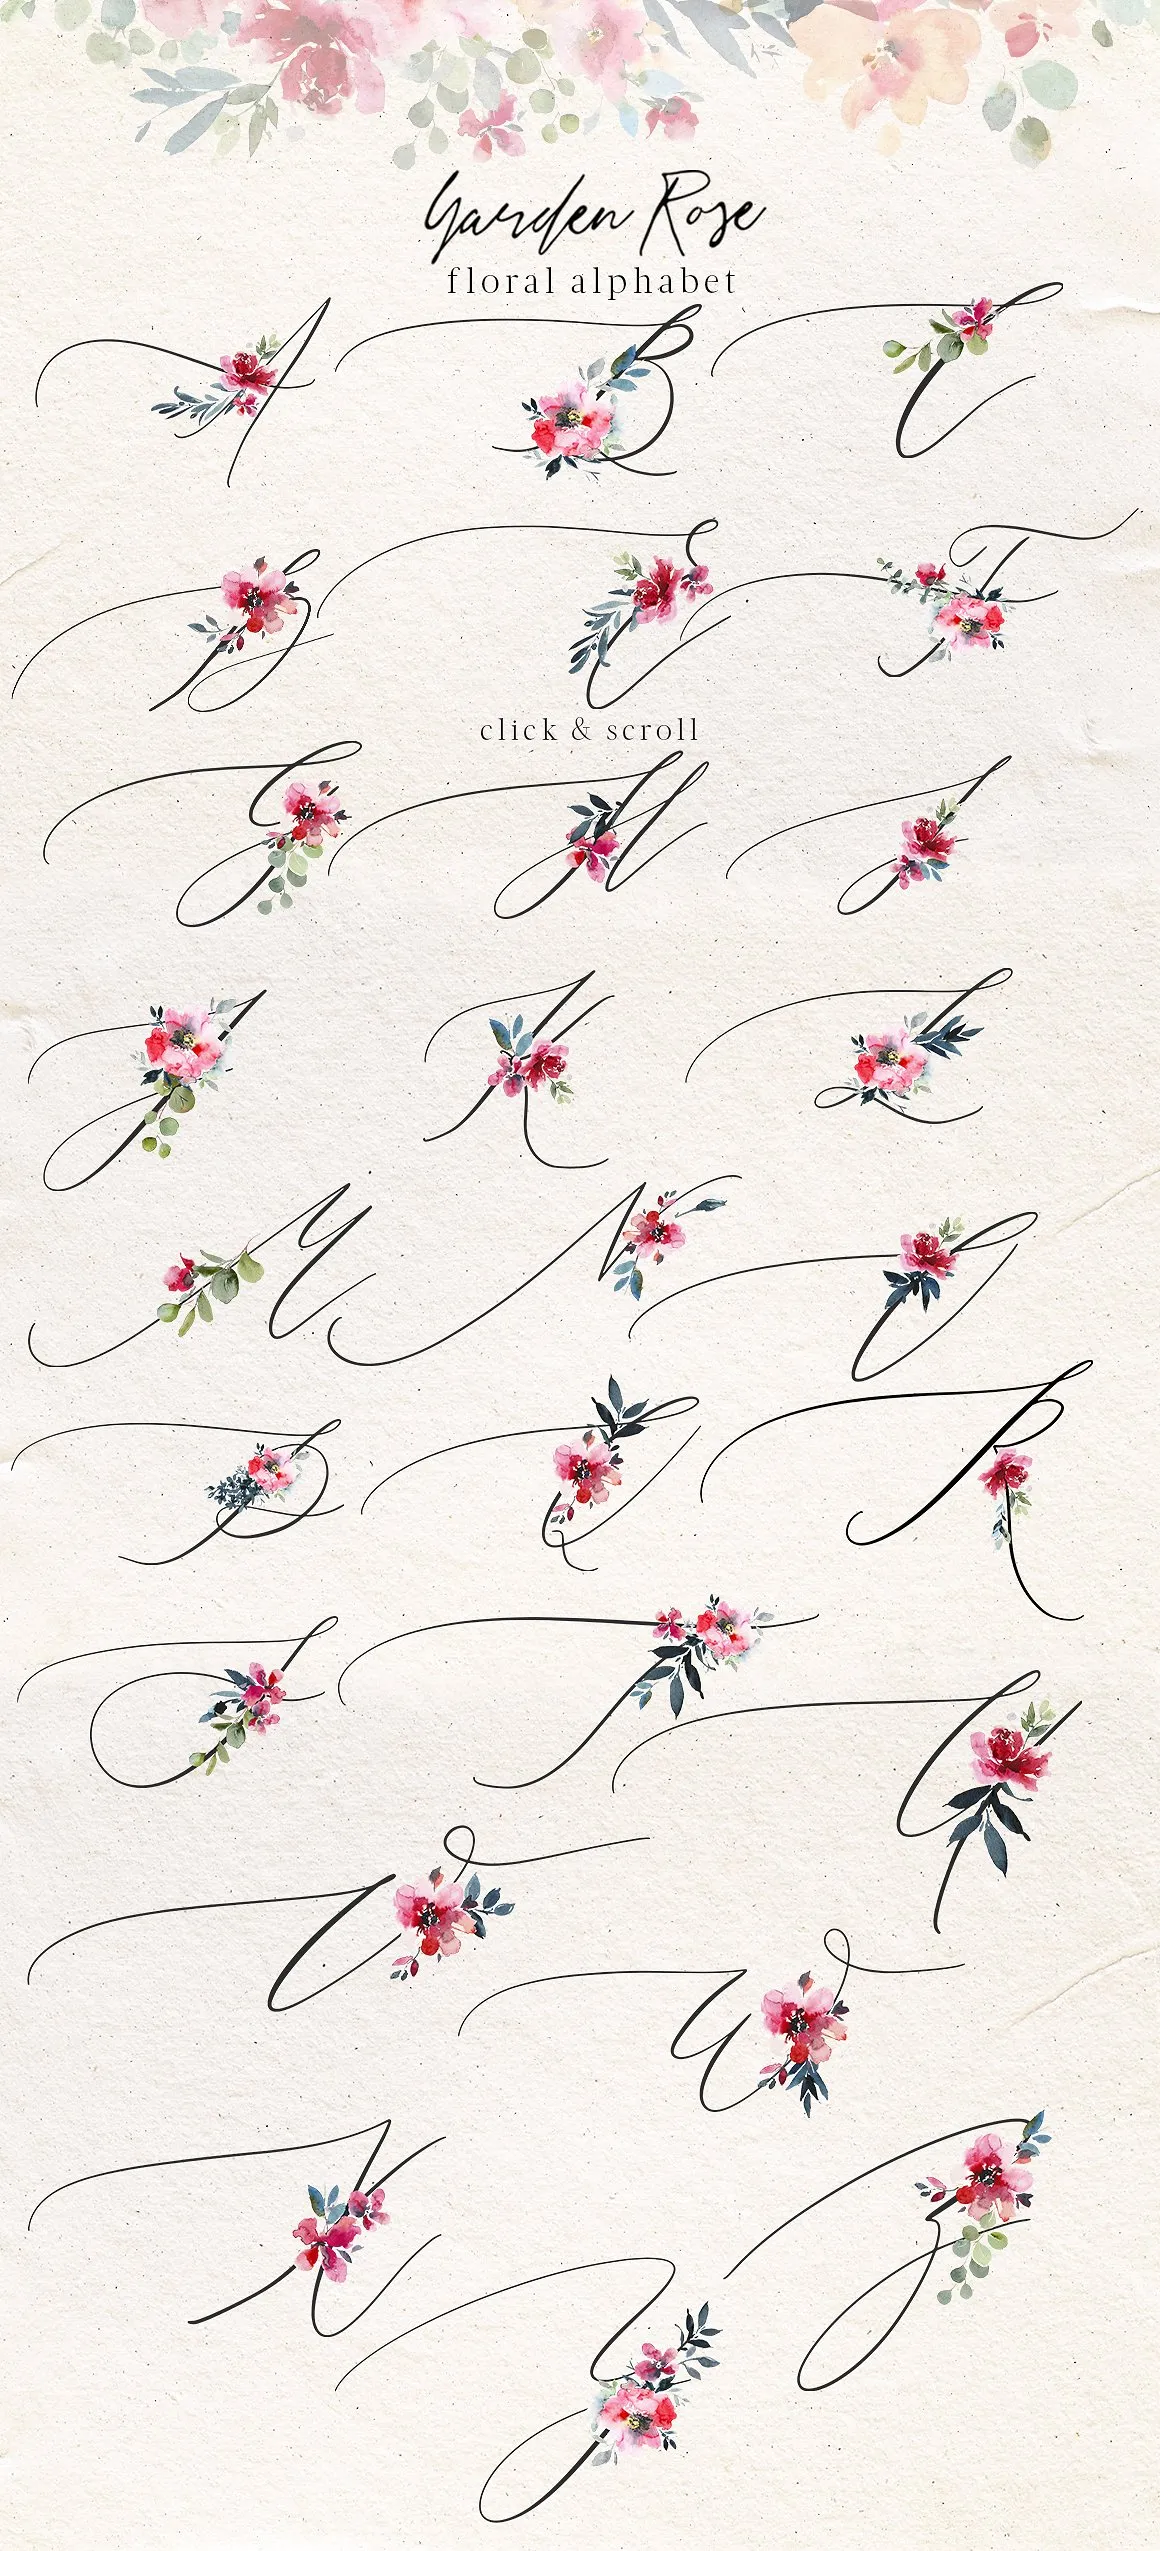 Garden Rose
floral alphabet
A B C
D E F
click & scroll
G H I
J K L
M N O
P Q R
S T U
V W
X Y Z